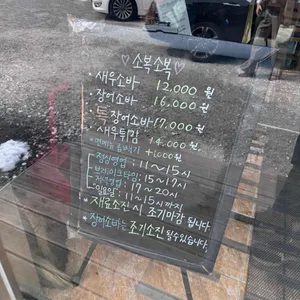 ♡소복소복♡
· 새우소바 12,000원
· 장어소바 16,000원
· 특 장어소바 17,000원
· 새우튀김 +4,000원
+1,000원
점심영업 : 11~15시
브레이크타임 : 15~17시
저녁영업 : 17~20시
일요일 : 11~15시까지
· 재료소진시 조기마감 됩니다.
· 장어소바는 조기소진 될수있습니다.